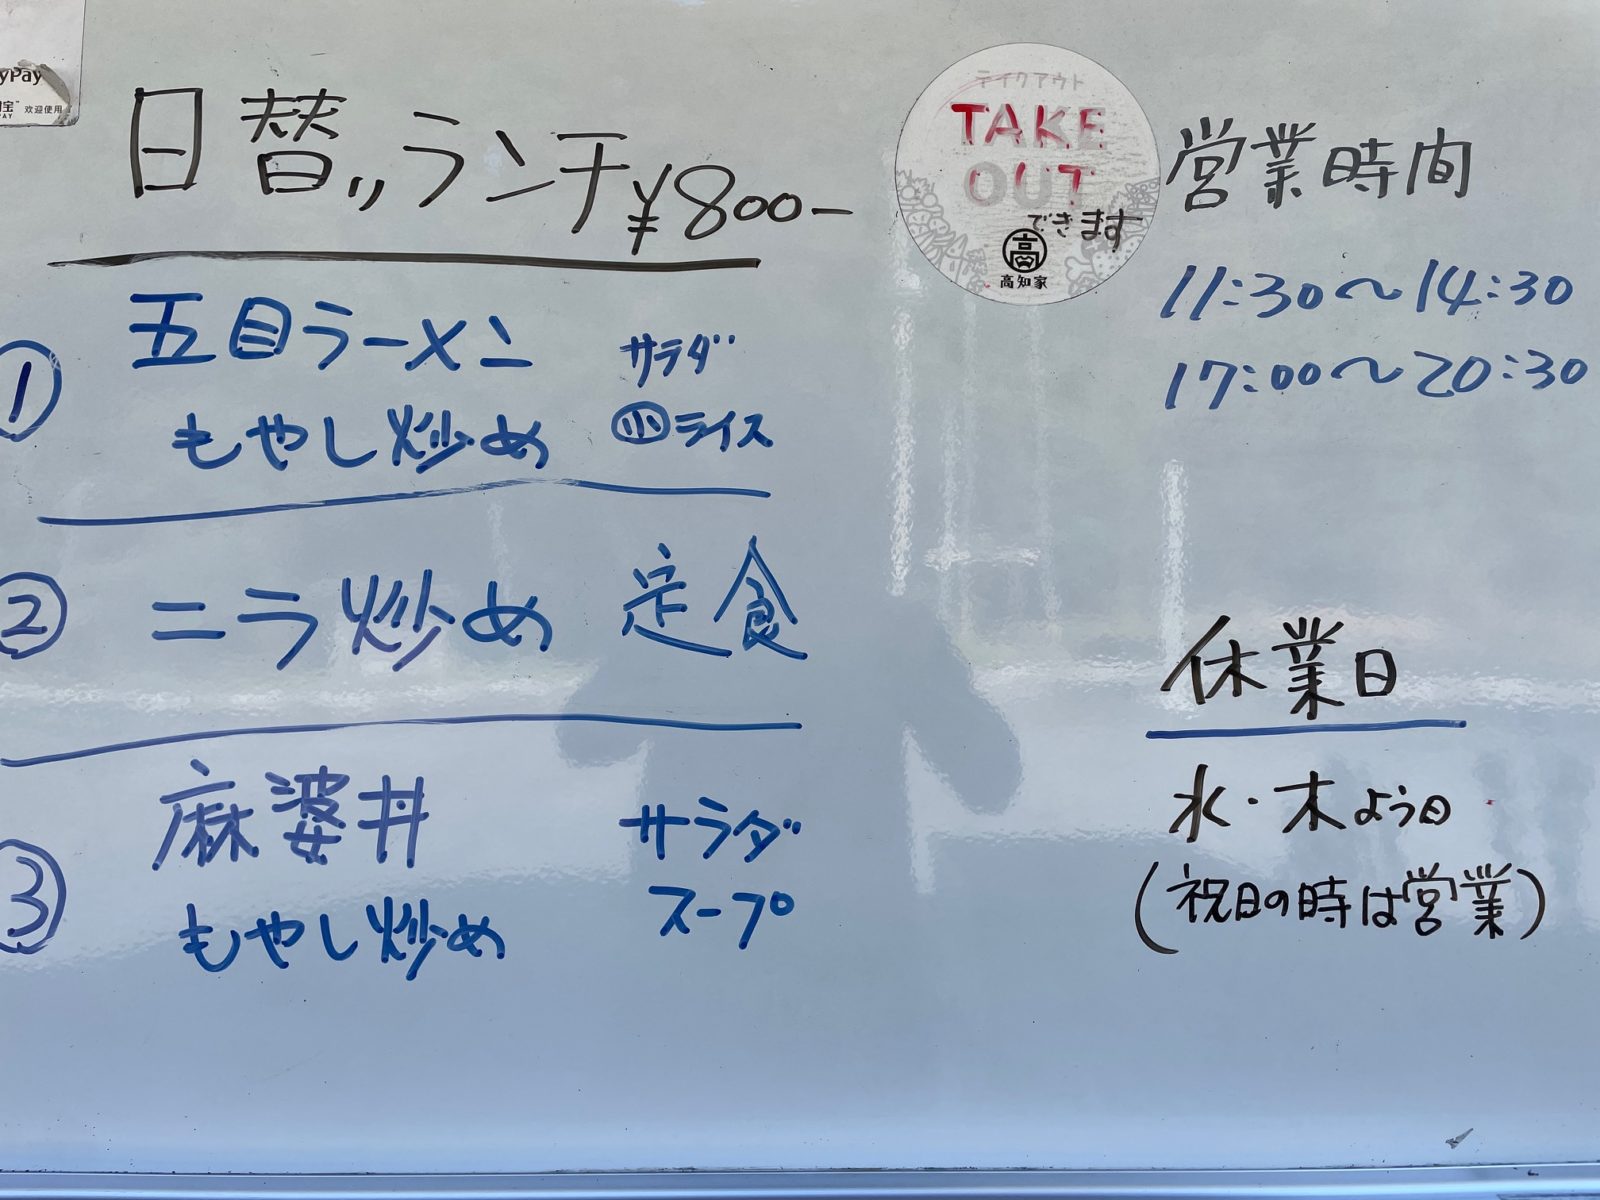 yPay
宝 欢迎使用
PAY
日替〃ランチ¥800-
① 五目ラーメン サラダ
もやし炒め ㊙ライス
② ニラ炒め 定食
③ 麻婆丼 サラダ
もやし炒め スープ
テイクアウト
TAKE
OUT
できます
高
高知家
営業時間
11:30〜14:30
17:00〜20:30
休業日
水・木よう日
(祝日の時は営業)